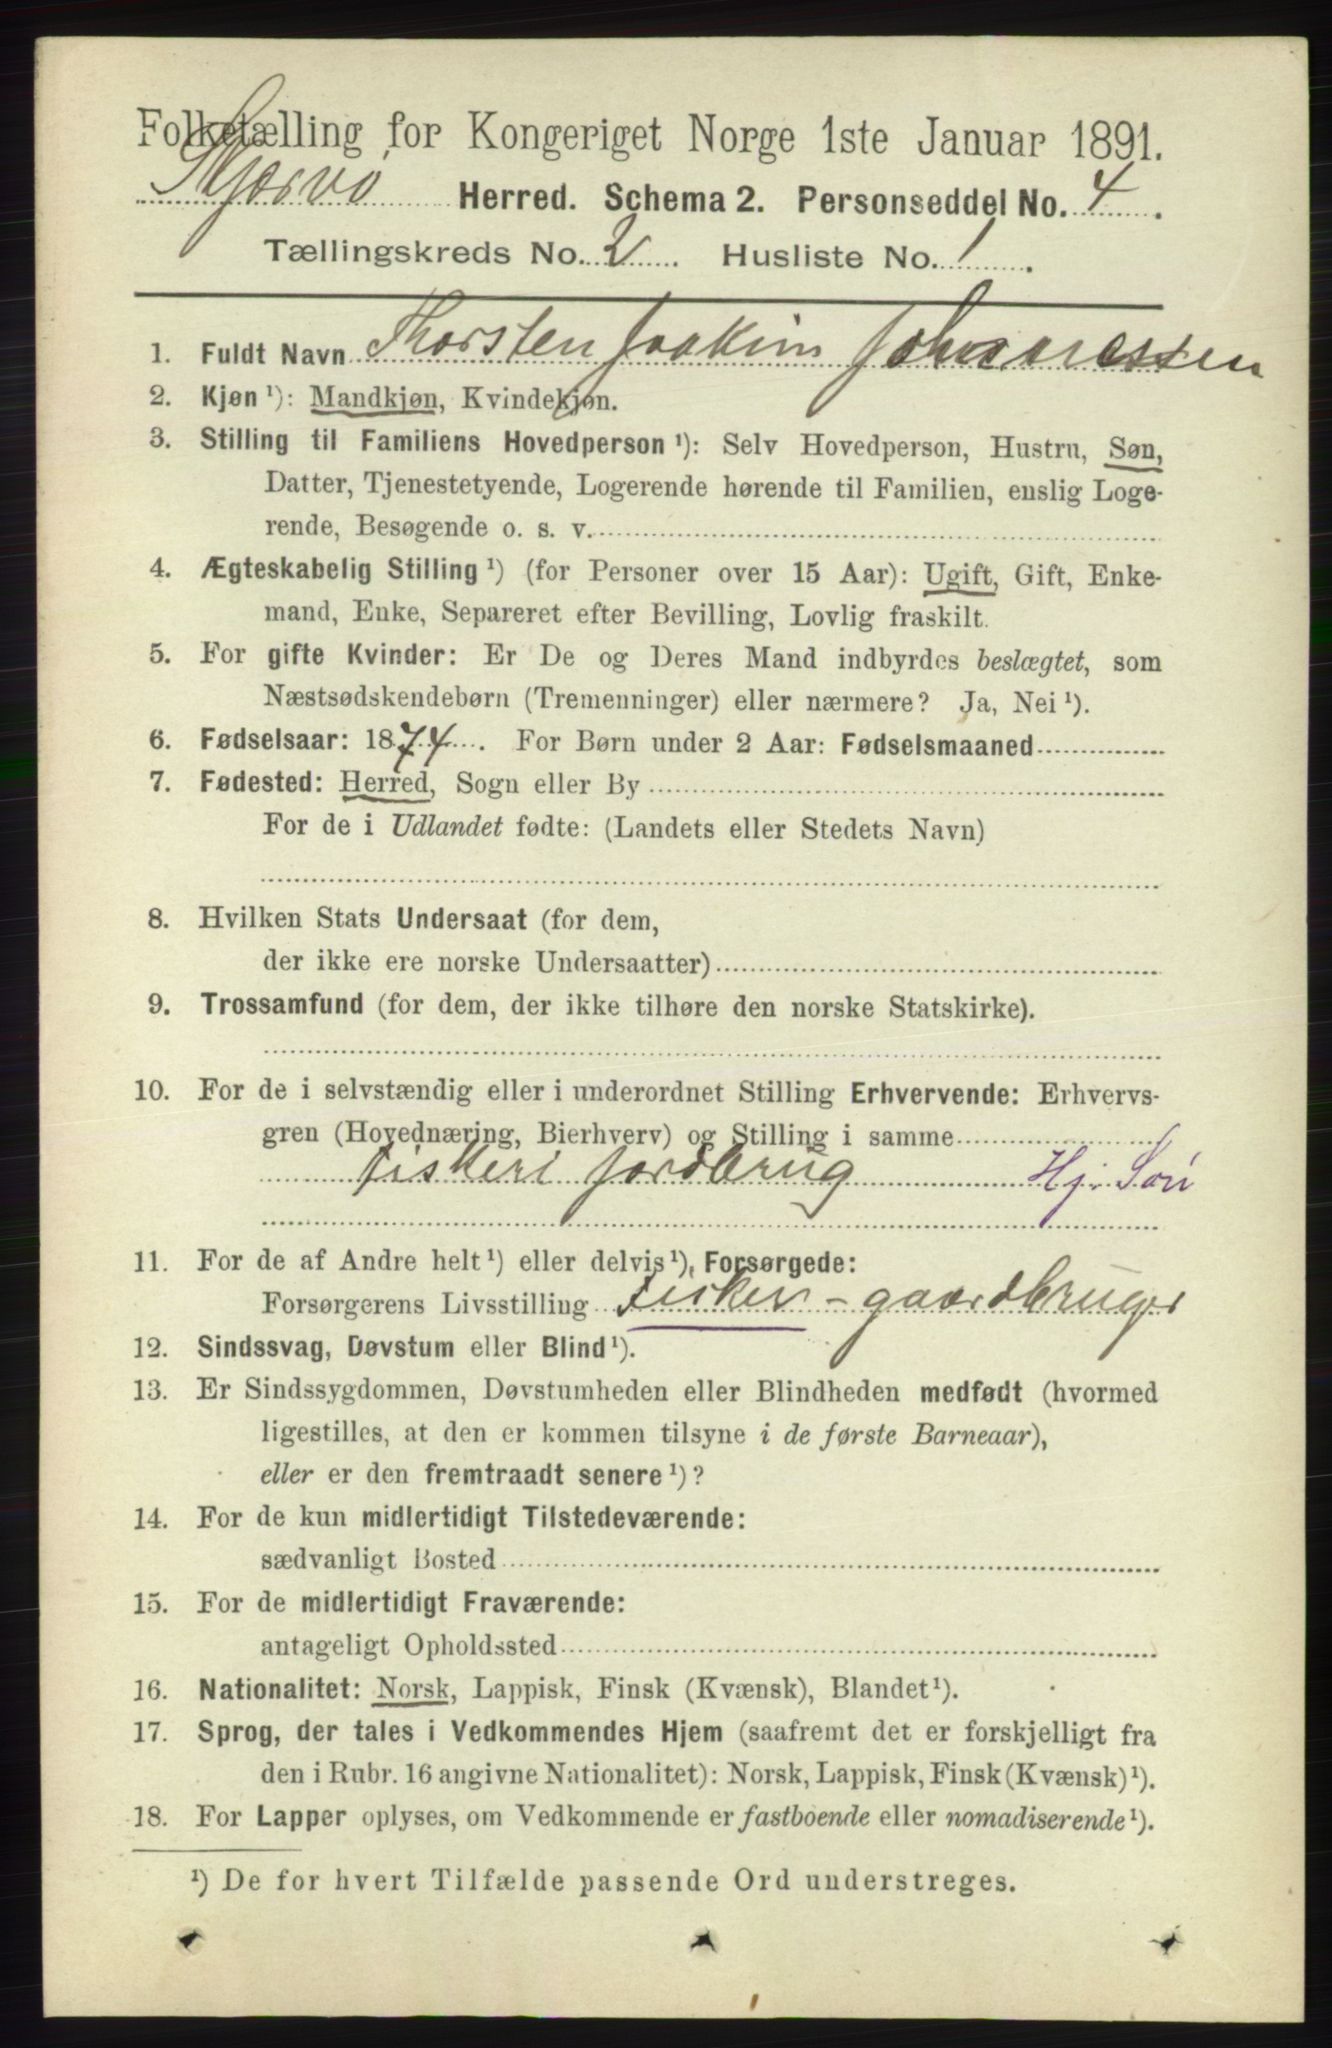 Folketælling for Kongeriget Norge 1ste Januar 1891.
Skjærvø Herred. Schema 2. Personseddel No. 4.
Tællingskreds No. 2. Husliste No. 1.
1. Fuldt Navn Thorsten Joakim Johannessen
2. Kjøn ¹): Mandkjøn, Kvindekjøn.
3. Stilling til Familiens Hovedperson ¹): Selv Hovedperson, Hustru, Søn,
Datter, Tjenestetyende, Logerende hørende til Familien, enslig Loge-
rende, Besøgende o. s. v.
4. Ægteskabelig Stilling ¹) (for Personer over 15 Aar): Ugift, Gift, Enke-
mand, Enke, Separeret efter Bevilling, Lovlig fraskilt.
5. For gifte Kvinder: Er De og Deres Mand indbyrdes beslægtet, som
Næstsødskendebørn (Tremenninger) eller nærmere? Ja, Nei ¹).
6. Fødselsaar: 1874. For Børn under 2 Aar: Fødselsmaaned
7. Fødested: Herred, Sogn eller By
For de i Udlandet fødte: (Landets eller Stedets Navn)
8. Hvilken Stats Undersaat (for dem,
der ikke ere norske Undersaatter)
9. Trossamfund (for dem, der ikke tilhøre den norske Statskirke).
10. For de i selvstændig eller i underordnet Stilling Erhvervende: Erhvervs-
gren (Hovednæring, Bierhverv) og Stilling i samme
fiskeri jordbrug Hj. Søn
11. For de af Andre helt ¹) eller delvis ¹), Forsørgede:
Forsørgerens Livsstilling Fisker - gaardbruger
12. Sindssvag, Døvstum eller Blind ¹).
13. Er Sindssygdommen, Døvstumheden eller Blindheden medfødt (hvormed
ligestilles, at den er kommen tilsyne i de første Barneaar),
eller er den fremtraadt senere ¹)?
14. For de kun midlertidigt Tilstedeværende:
sædvanligt Bosted
15. For de midlertidigt Fraværende:
antageligt Opholdssted
16. Nationalitet: Norsk, Lappisk, Finsk (Kvænsk), Blandet ¹).
17. Sprog, der tales i Vedkommendes Hjem (saafremt det er forskjelligt fra
den i Rubr. 16 angivne Nationalitet): Norsk, Lappisk, Finsk (Kvænsk) ¹).
18. For Lapper oplyses, om Vedkommende er fastboende eller nomadiserende ¹).
¹) De for hvert Tilfælde passende Ord understreges.